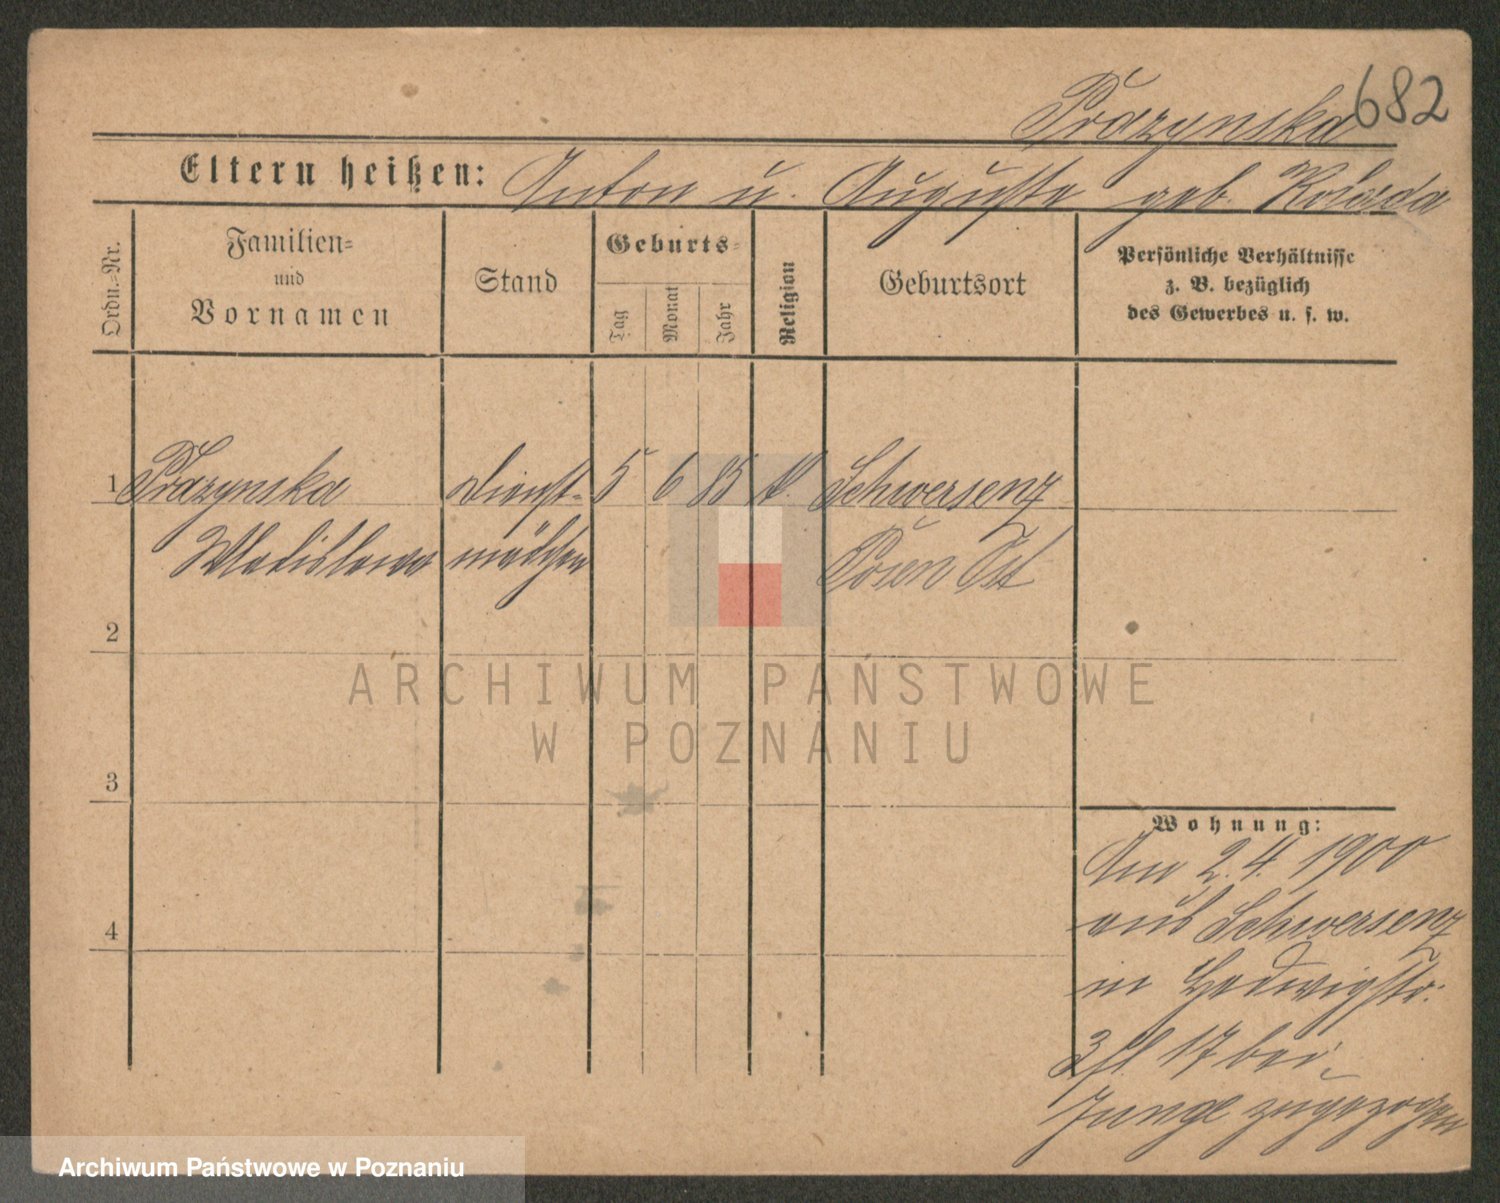 Prazynska 682
Eltern heißen: Anton u. Auguste geb. Kolasda
Ordn.-Nr.
Familien-
und
Vornamen
Stand
Geburts-
Tag
Monat
Jahr
Religion
Geburtsort
Persönliche Verhältnisse
z. B. bezüglich
des Gewerbes u. s. w.
1 Prazynska Dienst- 5 6 85 k. Schwersenz
Wladislawa mädchen Posen Ost
2
ARCHIWUM PAŃSTWOWE
W POZNANIU
3
Wohnung:
Am 2.4. 1900
aus Schwersenz
4
in Hedwigstr.
3 II. 17 bei
Junge zugezogen
Archiwum Państwowe w Poznaniu